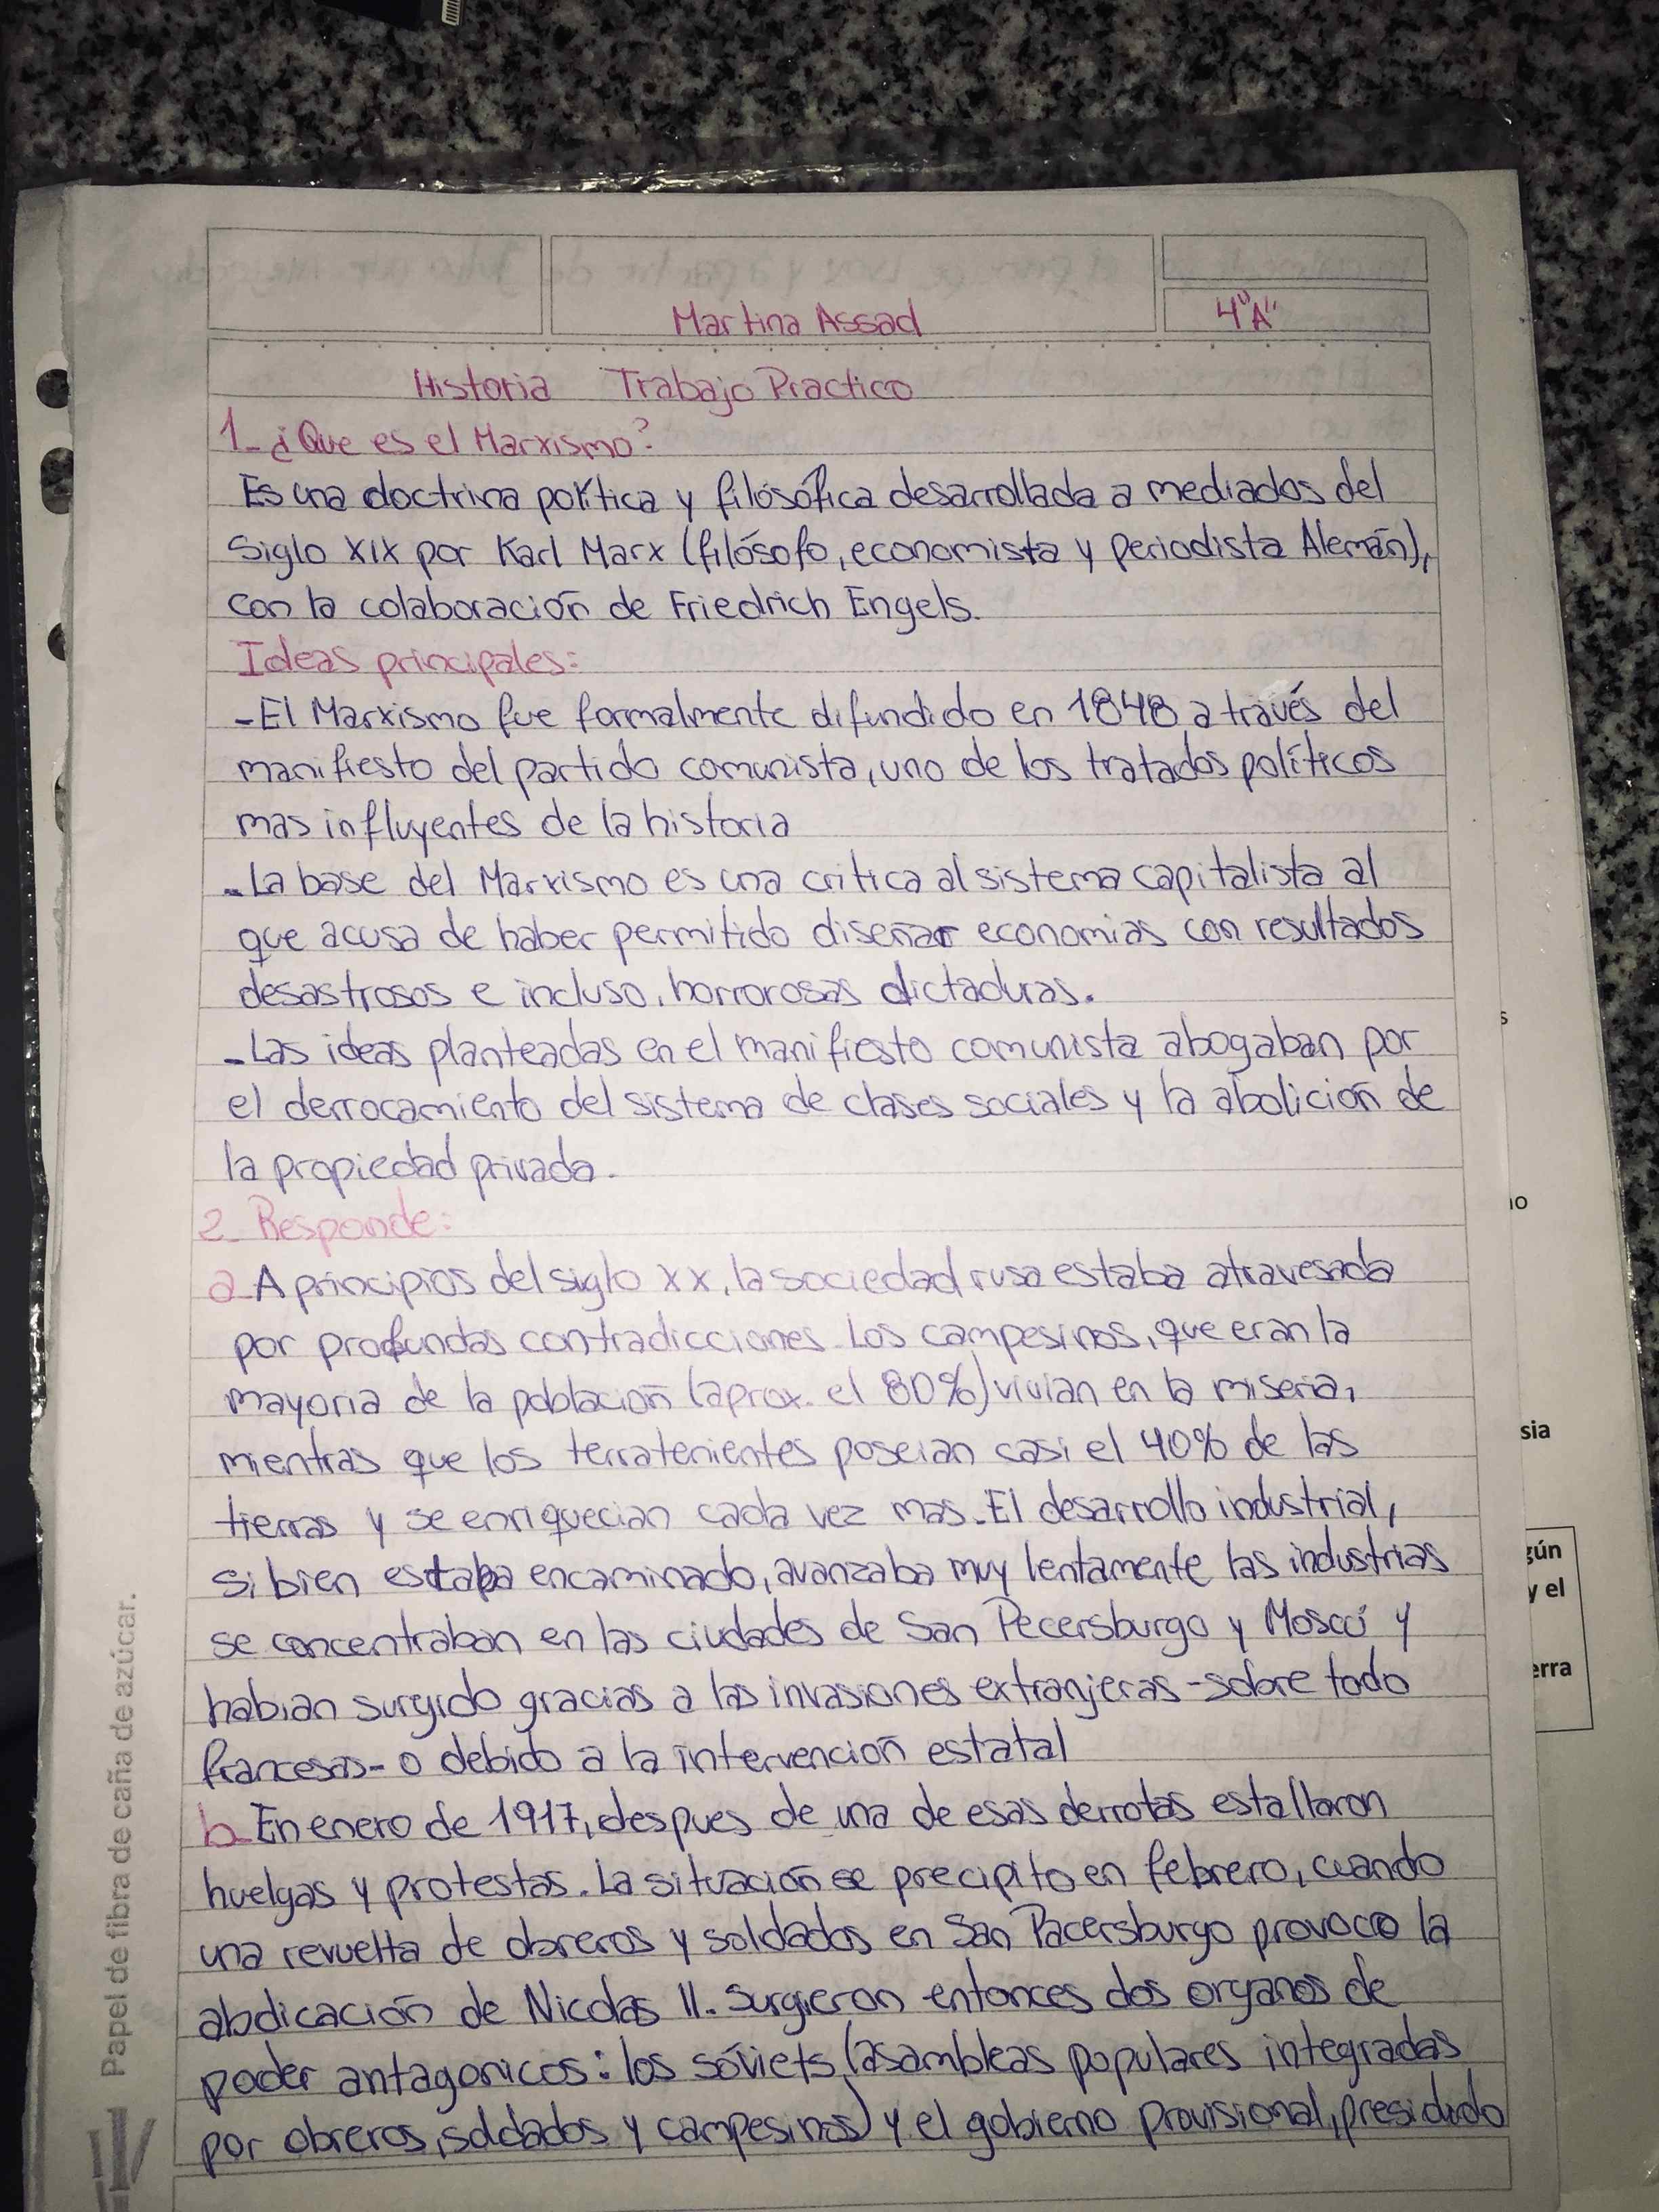 Martina Assad
4"A"
Historia Trabajo Practico
1_ ¿Que es el Marxismo?
Es una doctrina política y filosófica desarrollada a mediados del
Siglo XIX por Karl Marx (filósofo, economista y periodista Alemán),
con la colaboración de Friedrich Engels.
Ideas principales:
-El Marxismo fue formalmente difundido en 1848 a través del
manifiesto del partido comunista, uno de los tratados políticos
mas influyentes de la historia
-La base del Marxismo es una critica al sistema capitalista al
que acusa de haber permitido diseñar economias con resultados
desastrosos e incluso, horrorosas dictaduras.
-Las ideas planteadas en el manifiesto comunista abogaban por
el derrocamiento del sistema de clases sociales y la abolición de
la propiedad privada.
2_ Responde:
a_ A principios del siglo XX, la sociedad rusa estaba atravesada
por profundas contradicciones. Los campesinos, que eran la
mayoria de la población (aprox. el 80%) vivian en la miseria,
mientras que los terratenientes poseian casi el 40% de las
tierras y se enriquecian cada vez mas. El desarrollo industrial,
si bien estaba encaminado, avanzaba muy lentamente las industrias
se concentraban en las ciudades de San Pecersburgo y Moscú y
habian surgido gracias a las invasiones extranjeras -sobre todo
francesas- o debido a la intervención estatal
b_ En enero de 1917, despues de una de esas derrotas estallaron
huelgas y protestas. La situación se precipito en febrero, cuando
una revuelta de obreros y soldados en San Pacersburgo provoco la
abdicación de Nicolas II. Surgieron entonces dos organos de
poder antagonicos: los sóviets (asambleas populares integradas
por obreros, soldados y campesinos) y el gobierno provisional, presidido
Papel de fibra de caña de azúcar.
s
no
sia
gún
y el
erra